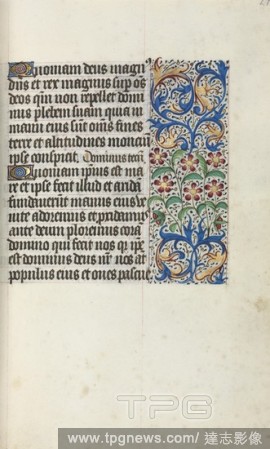 Quoniam deus magnus
dñs et rex magnus sup om̃s
deos qm̃ non repellet domi
nus plebem suam quia in
manu eius sũt om̃s fines
terre et altitudines monciũ
ipse conspicit. Dominus tecũ
Quoniam ip̃ius est ma
re et ipse fecit illud et arida
fundauerũt manus eius ve
nite adoremus et p̃cidamus
ante deum ploremus corã
domino qui fecit nos q̃r ip̃e
est dominus deus nr̃ nos aũt
populus eius et oues pascue
TPG
www.tpgnews.com/達志影像